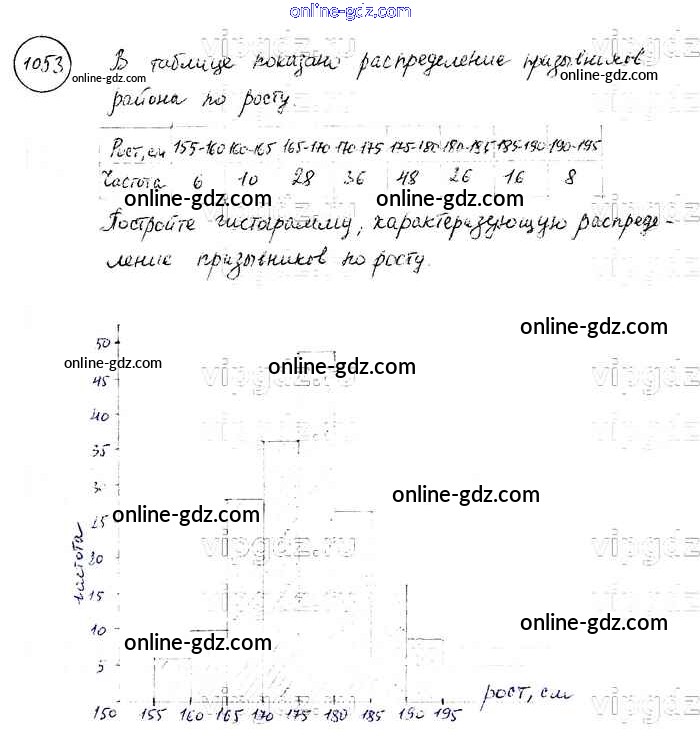 online-gdz.com
1053. В таблице показано распределение призывников
online-gdz.com
района по росту.
Рост, см 155-160 160-165 165-170 170-175 175-180 180-185 185-190 190-195
Частота 6 10 28 36 48 26 16 8
online-gdz.com online-gdz.com
Постройте гистограмму, характеризующую распреде-
ление призывников по росту.
online-gdz.com
50
online-gdz.com
vipgdz.ru
online-gdz.com
45
40
35
30
online-gdz.com
25
online-gdz.com
vipgdz.ru
20
частота
15
10
online-gdz.com
online-gdz.com
5
рост, см
150 155 160 165 170 175 180 185 190 195